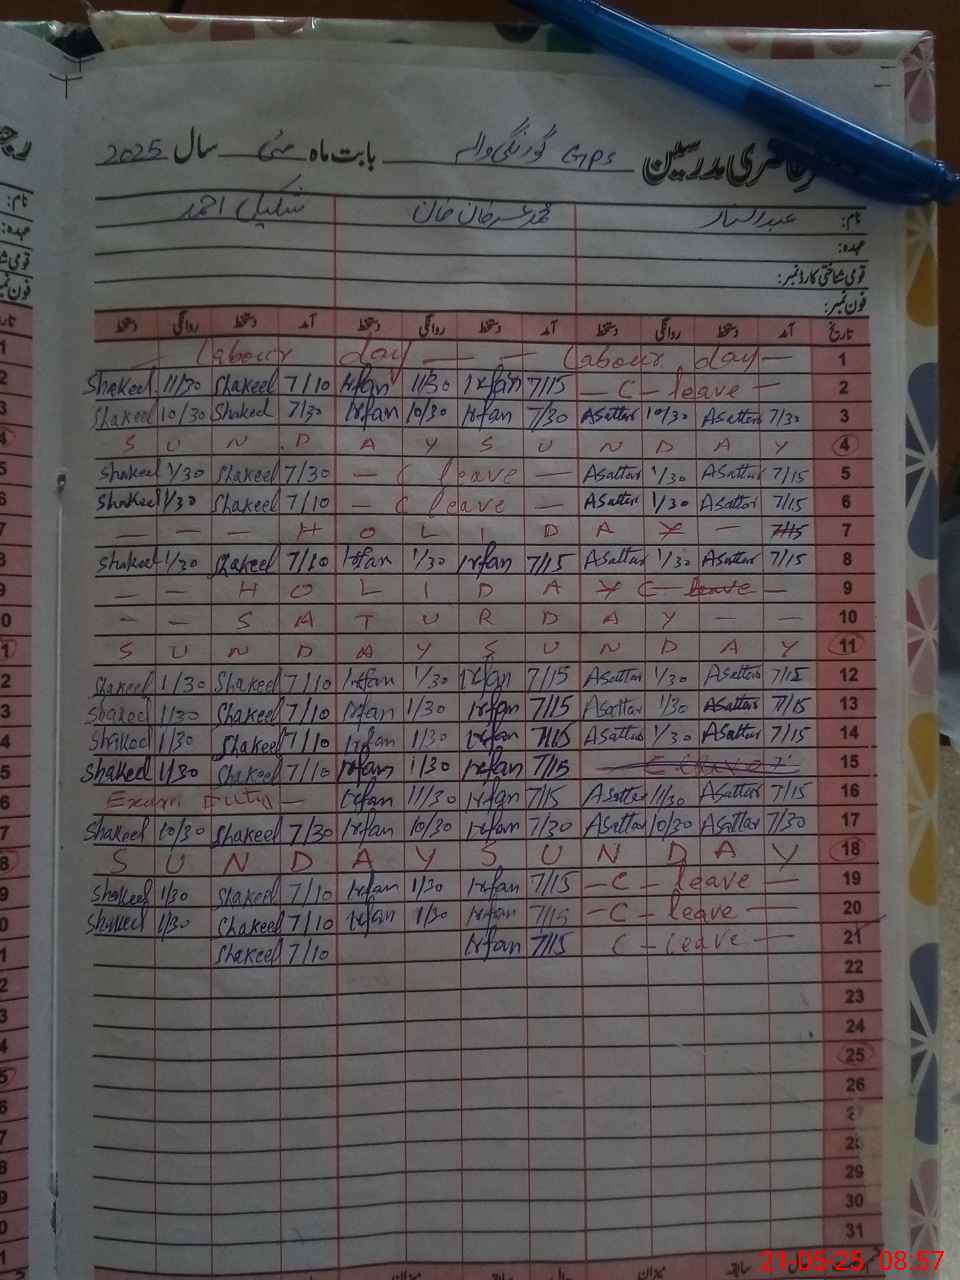 حاضری مدرسین GPS گورنگی والہ بابت ماہ مئی سال 2025
نام: عبدالستار محمد عمر خان شکیل احمد
عہدہ:
قومی شناختی کارڈ نمبر:
فون نمبر:
تاریخ آمد دستخط روانگی دستخط آمد دستخط روانگی دستخط آمد دستخط روانگی دستخط
— Labour day — — Labour day — 1
Shakeel 11/30 Shakeel 7/10 Irfan 11/30 Irfan 7/15 — C - leave — 2
Shakeel 10/30 Shakeel 7/30 Irfan 10/30 Irfan 7/30 ASattar 10/30 ASattar 7/30 3
S U N D A Y S U N D A Y 4
Shakeel 1/30 Shakeel 7/30 — C leave — ASattar 1/30 ASattar 7/15 5
Shakeel 1/30 Shakeel 7/10 — C leave — ASattar 1/30 ASattar 7/15 6
— — — H O L I D A Y — 7/15 7
Shakeel 1/30 Shakeel 7/10 Irfan 1/30 Irfan 7/15 ASattar 1/30 ASattar 7/15 8
— — H O L I D A Y C - leave — 9
— — S A T U R D A Y — — 10
S U N D A Y S U N D A Y 11
Shakeel 1/30 Shakeel 7/10 Irfan 1/30 Irfan 7/15 ASattar 1/30 ASattar 7/15 12
Shakeel 1/30 Shakeel 7/10 Irfan 1/30 Irfan 7/15 ASattar 1/30 ASattar 7/15 13
Shakeel 1/30 Shakeel 7/10 Irfan 1/30 Irfan 7/15 ASattar 1/30 ASattar 7/15 14
Shakeel 1/30 Shakeel 7/10 Irfan 1/30 Irfan 7/15 — C leave 15
Exam Duty — Irfan 11/30 Irfan 7/15 ASattar 11/30 ASattar 7/15 16
Shakeel 10/30 Shakeel 7/30 Irfan 10/30 Irfan 7/30 ASattar 10/30 ASattar 7/30 17
S U N D A Y S U N D A Y 18
Shakeel 1/30 Shakeel 7/10 Irfan 1/30 Irfan 7/15 — C - leave — 19
Shakeel 1/30 Shakeel 7/10 Irfan 1/30 Irfan 7/15 — C - leave — 20
Shakeel 7/10 Irfan 7/15 C - leave — 21
22
23
24
25
26
27
28
29
30
31
21-05-25 08:57